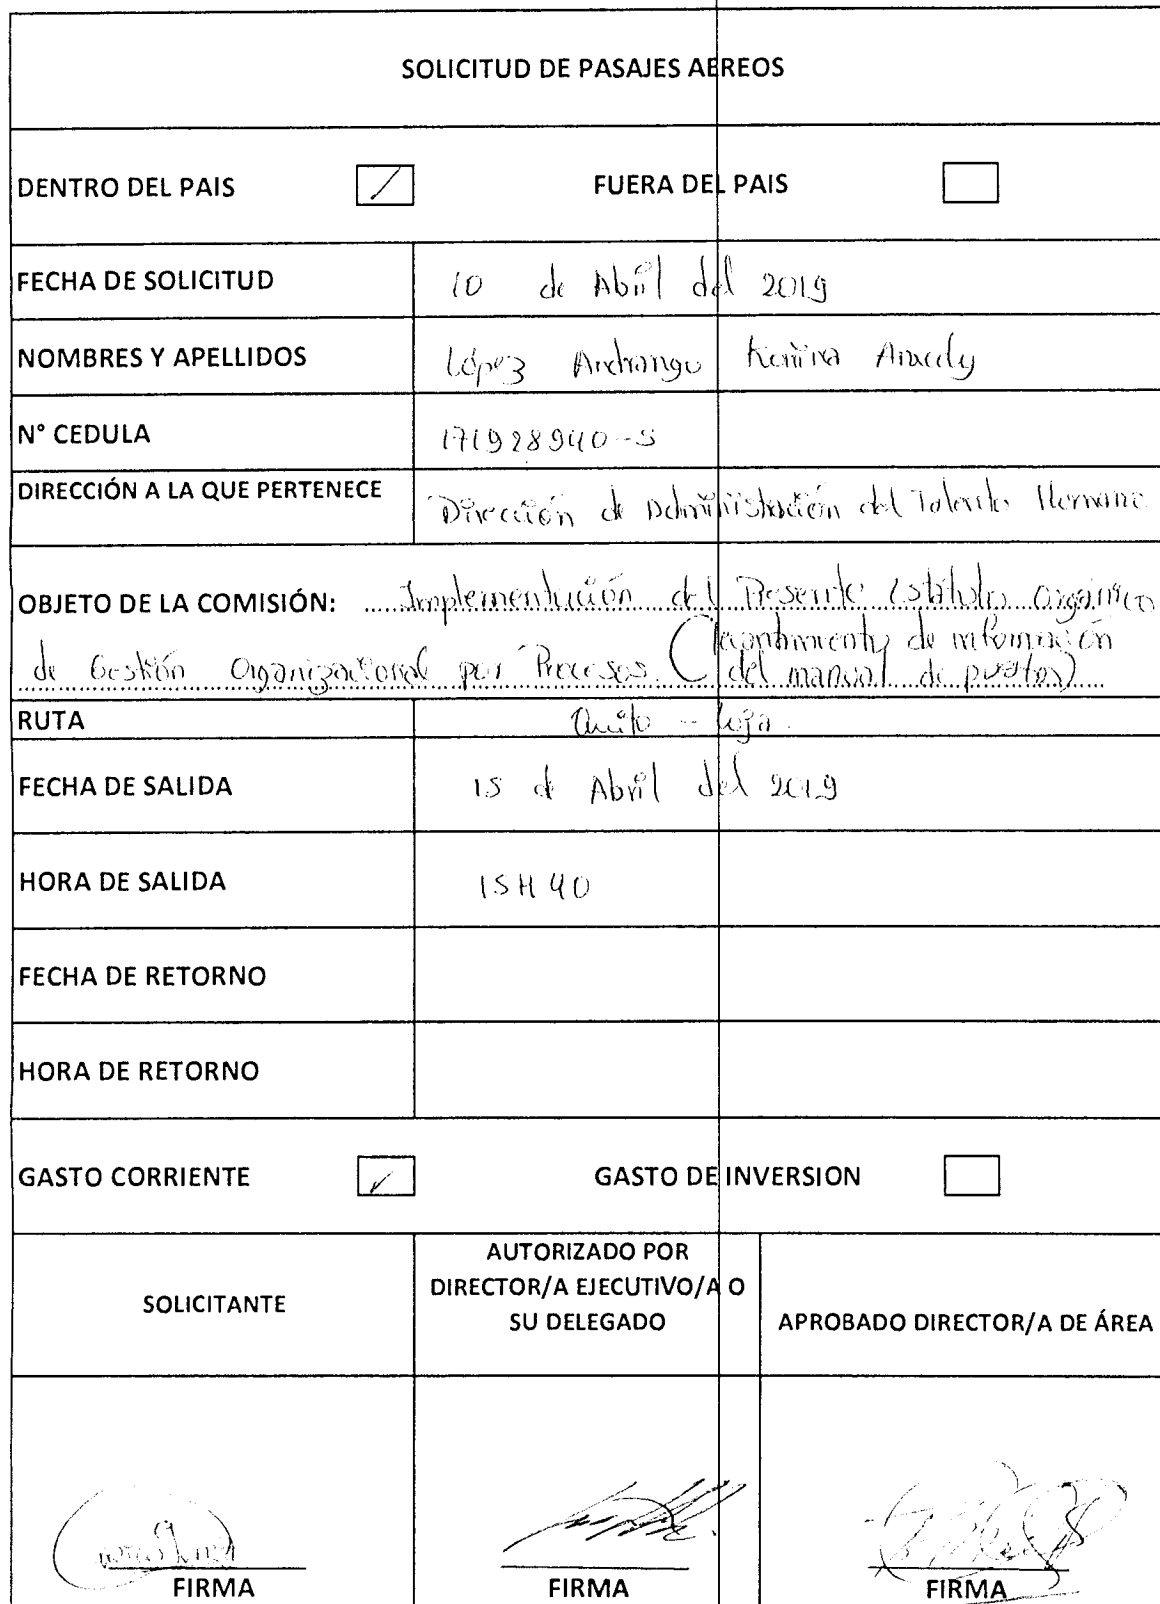 SOLICITUD DE PASAJES AEREOS
DENTRO DEL PAIS FUERA DEL PAIS
FECHA DE SOLICITUD 10 de Abril del 2019
NOMBRES Y APELLIDOS López Andrango Aracely
N° CEDULA 171928940-5
DIRECCIÓN A LA QUE PERTENECE Dirección de Administración del Talento Humano
OBJETO DE LA COMISIÓN: Implementación del Presente Estatuto Orgánico
de Gestión Organizacional por Procesos (Levantamiento de información
del manual de puestos)
RUTA Quito - Loja
FECHA DE SALIDA 15 de Abril del 2019
HORA DE SALIDA 15H40
FECHA DE RETORNO
HORA DE RETORNO
GASTO CORRIENTE GASTO DE INVERSION
SOLICITANTE
AUTORIZADO POR
DIRECTOR/A EJECUTIVO/A O
SU DELEGADO
APROBADO DIRECTOR/A DE ÁREA
FIRMA FIRMA FIRMA